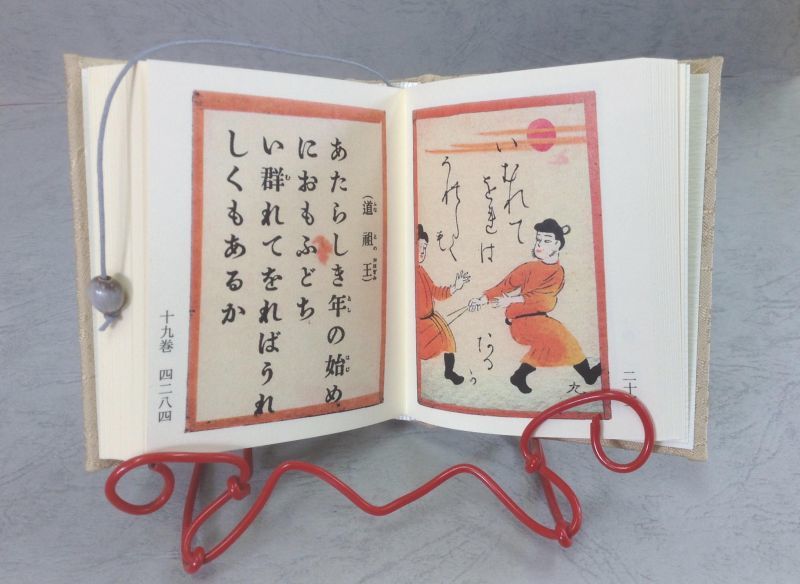 二十
いむれて
をれは
うれしく
も
ある
か
九
(道祖王)
あたらしき年の始め
におもふどち
い群れてをればうれ
しくもあるか
十九巻 四二八四